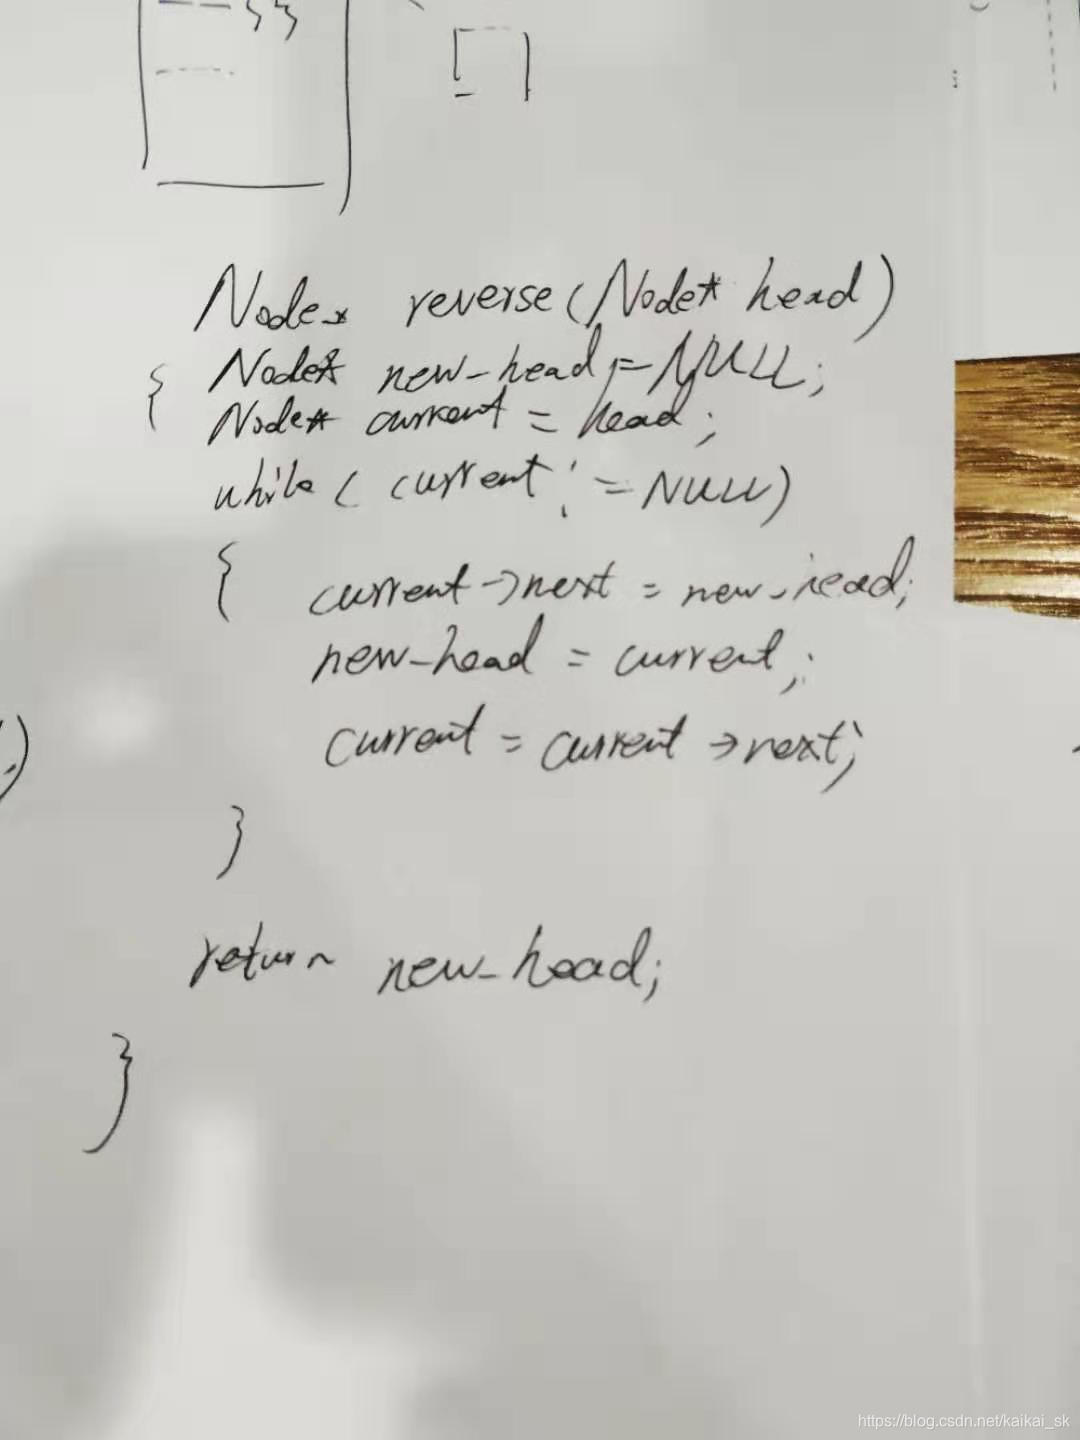 Node* reverse(Node* head)
{ Node* new_head = NULL;
Node* current = head;
while ( current != NULL)
{ current->next = new_head;
new_head = current;
current = current->next;
}
return new_head;
}
https://blog.csdn.net/kaikai_sk